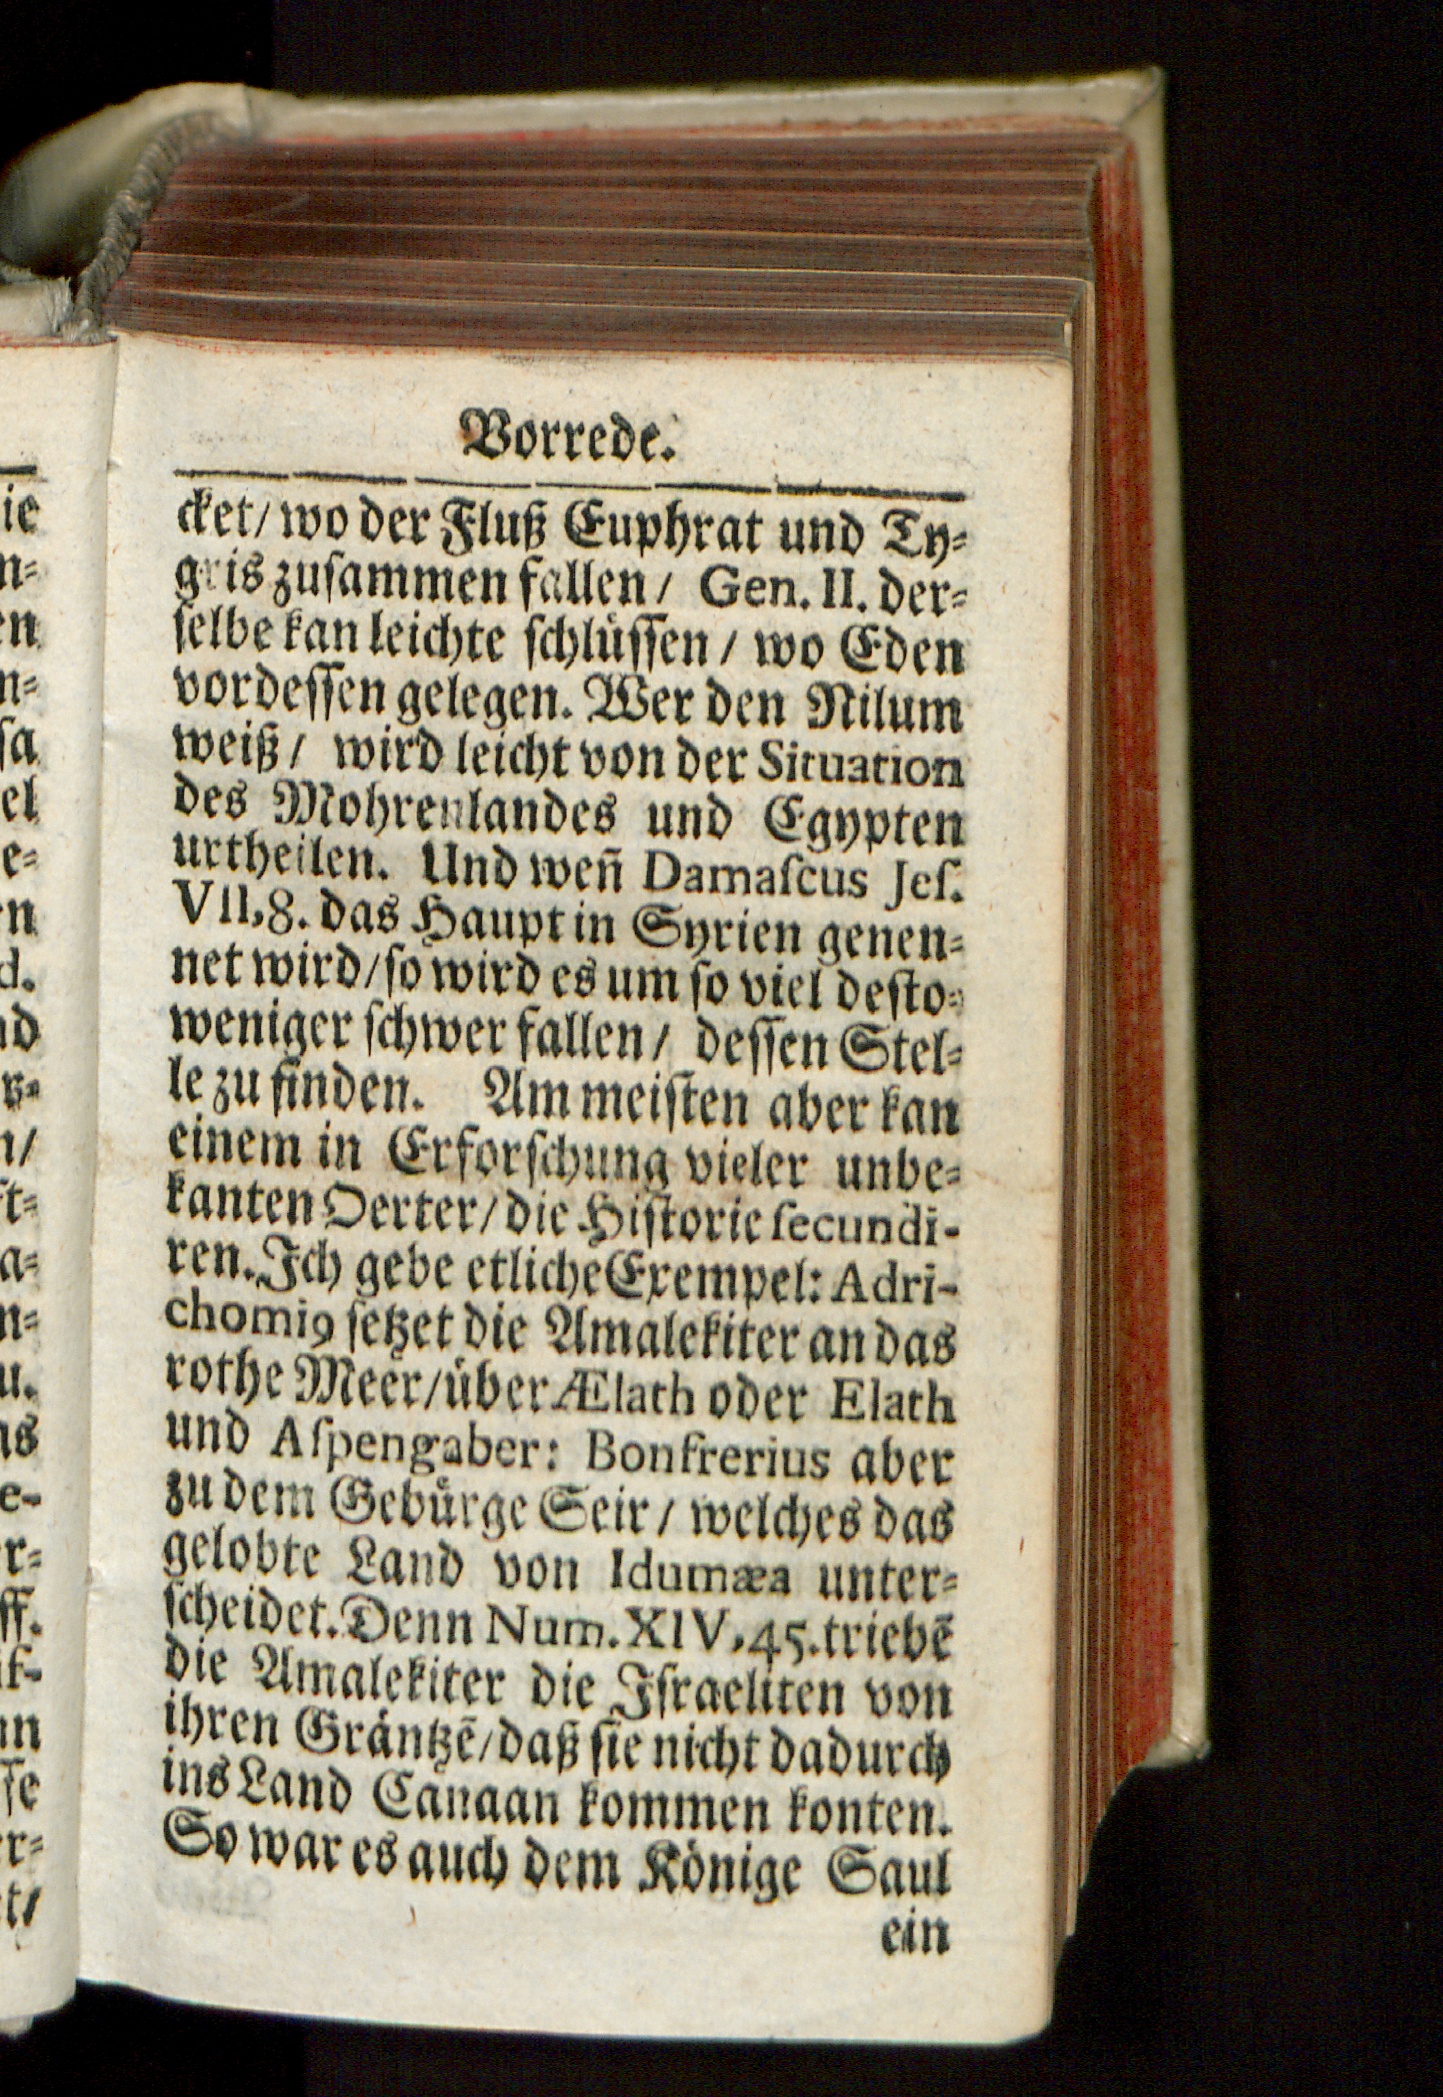 Vorrede.
cket/ wo der Fluß Euphrat und Ty-
gris zusammen fallen/ Gen. II. der-
selbe kan leichte schlüssen/ wo Eden
vordessen gelegen. Wer den Nilum
weiß/ wird leicht von der Situation
des Mohrenlandes und Egypten
urtheilen. Und weñ Damaſcus Jeſ.
VII, 8. das Haupt in Syrien genen-
net wird/ so wird es um so viel desto-
weniger schwer fallen/ dessen Stel-
le zu finden. Am meisten aber kan
einem in Erforschung vieler unbe-
kanten Oerter/ die Historie ſecundi-
ren. Ich gebe etliche Exempel: Adri-
chomiꝯ setzet die Amalekiter an das
rothe Meer/ über Ælath oder Elath
und Aſpengaber: Bonfrerius aber
zu dem Gebürge Seir/ welches das
gelobte Land von Idumæa unter-
scheidet. Denn Num. XIV, 45. triebē
die Amalekiter die Israeliten von
ihren Gräntzē/ daß sie nicht dadurch
ins Land Canaan kommen konten.
So war es auch dem Könige Saul
ein